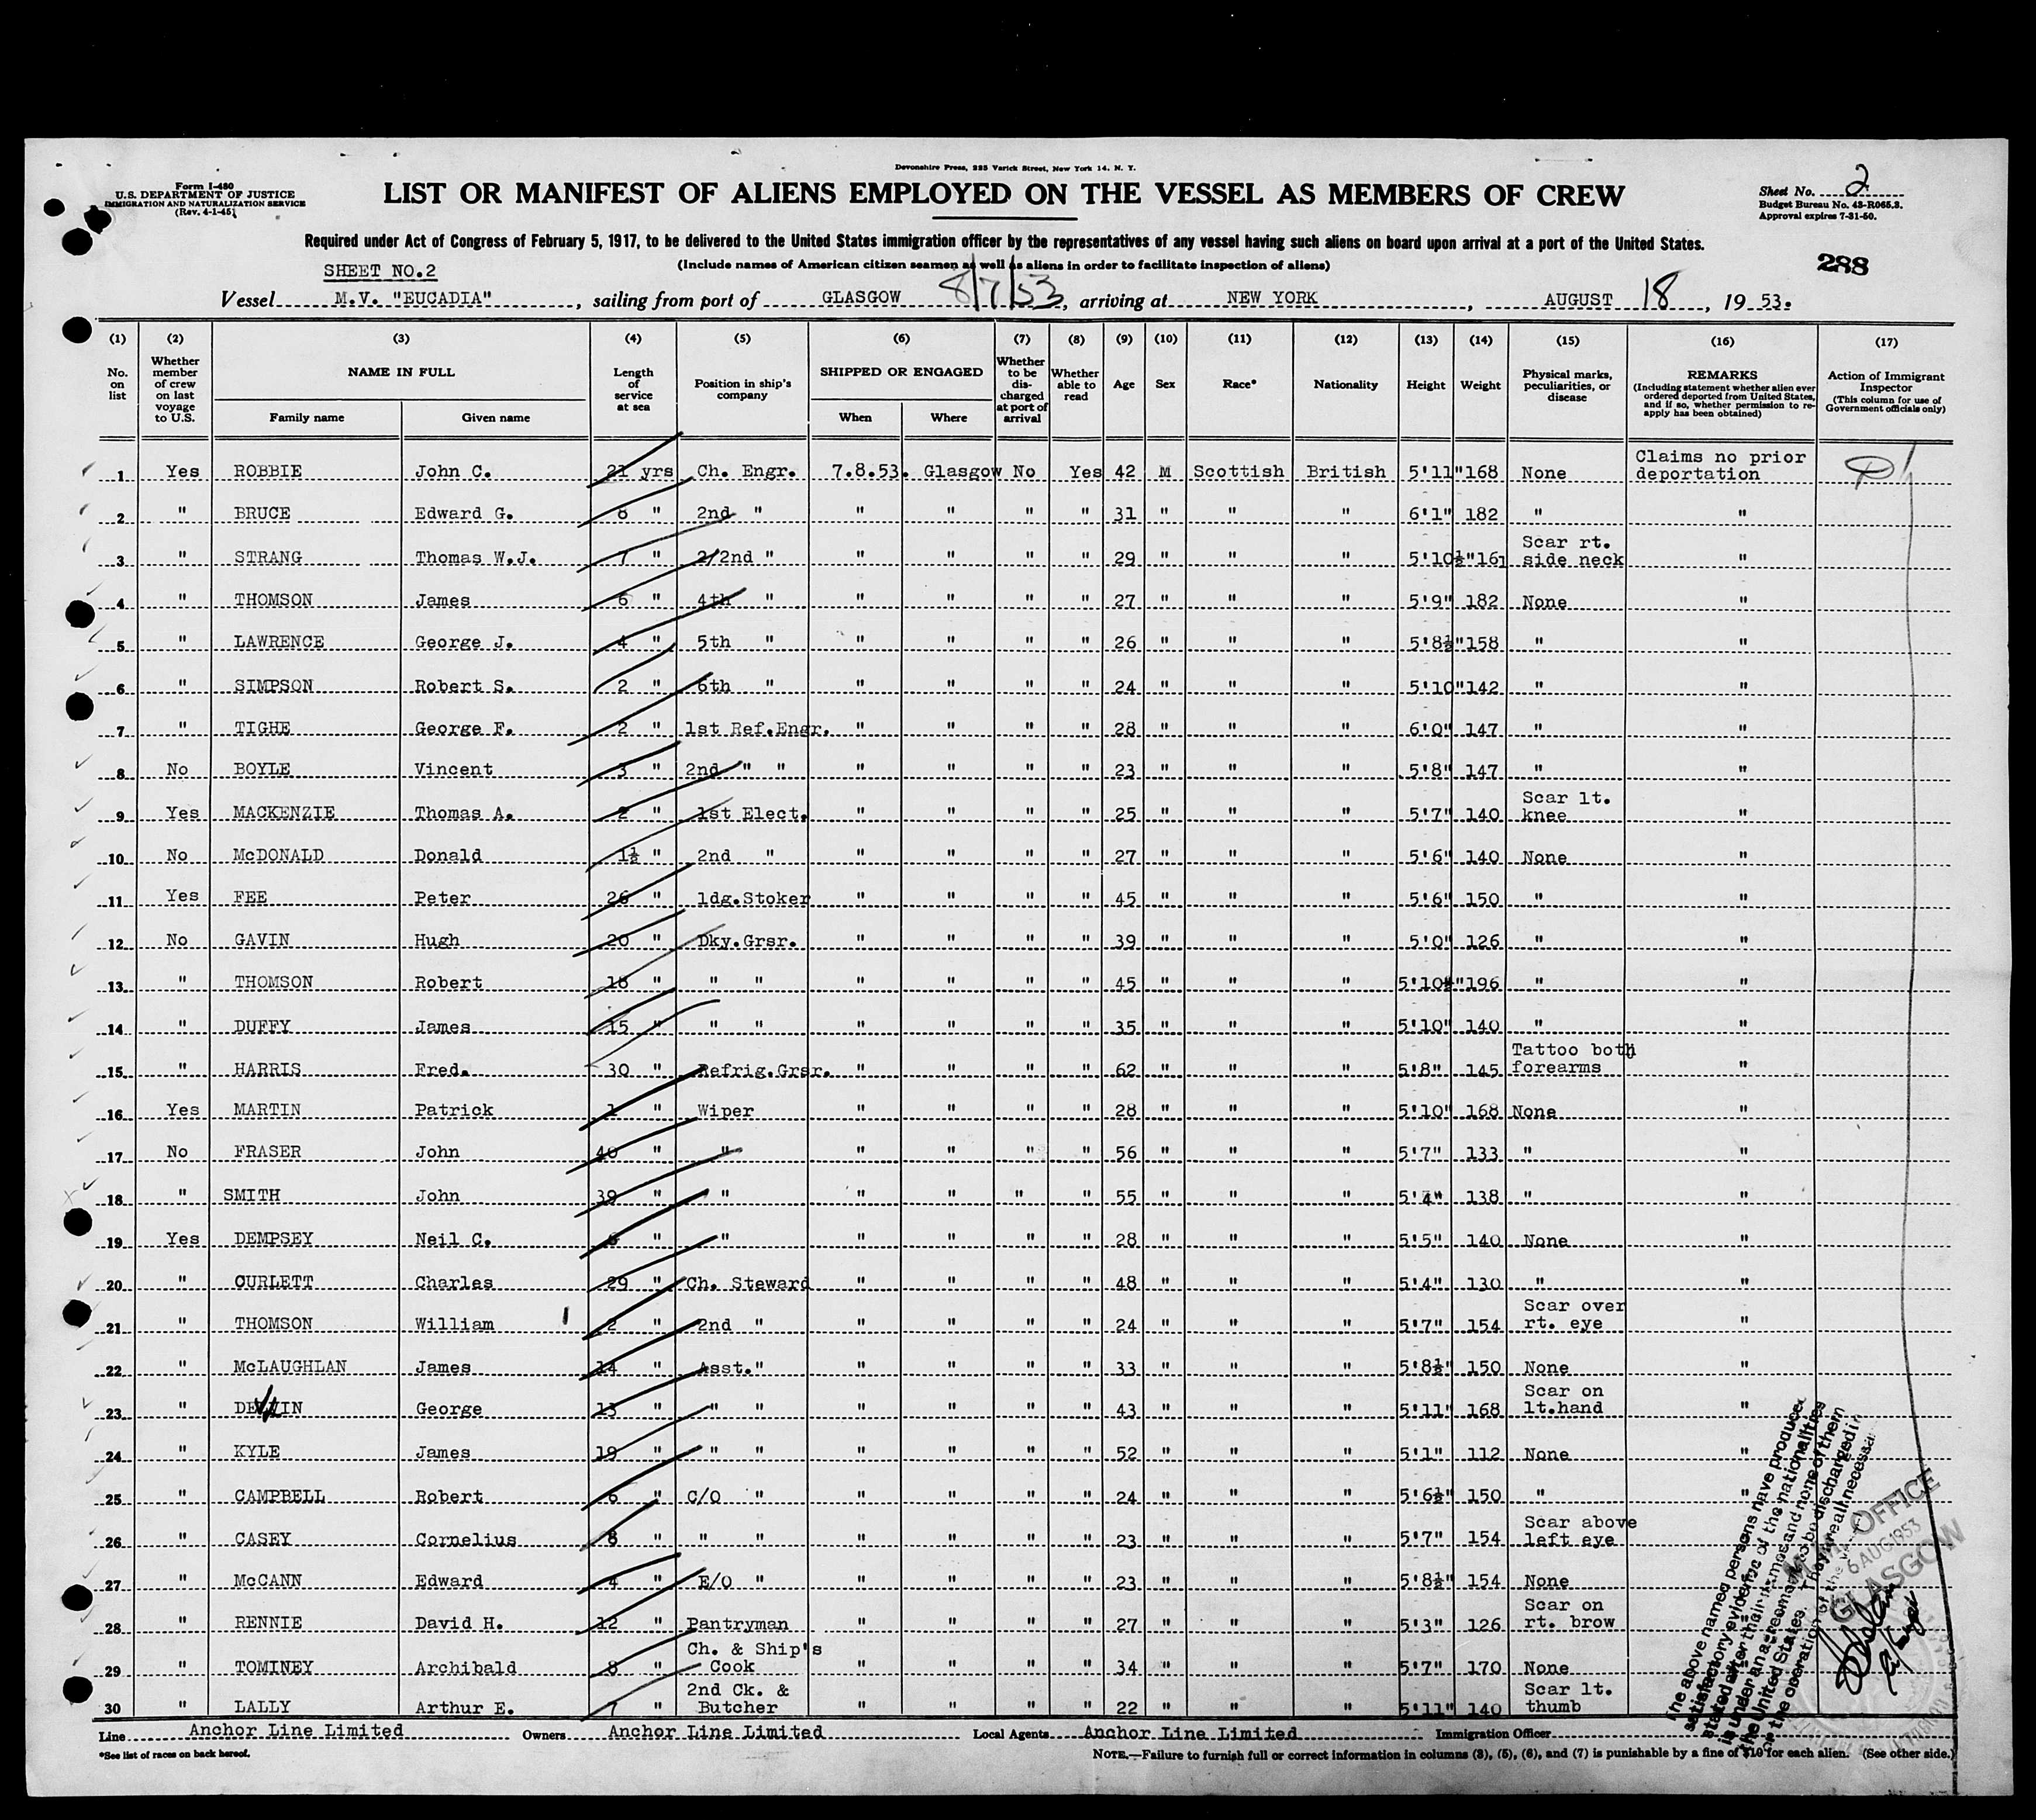 Devonshire Press, 225 Varick Street, New York 14, N. Y.
Form I-480
U.S. DEPARTMENT OF JUSTICE
IMMIGRATION AND NATURALIZATION SERVICE
(Rev. 4-1-45)
LIST OR MANIFEST OF ALIENS EMPLOYED ON THE VESSEL AS MEMBERS OF CREW
Sheet No. 2
Budget Bureau No. 43-R065.3.
Approval expires 7-31-50.
Required under Act of Congress of February 5, 1917, to be delivered to the United States immigration officer by the representatives of any vessel having such aliens on board upon arrival at a port of the United States.
(Include names of American citizen seamen as well as aliens in order to facilitate inspection of aliens)
288
SHEET NO.2
Vessel M.V. "EUCADIA", sailing from port of GLASGOW 8/7/53, arriving at NEW YORK, AUGUST 18, 1953.
(1) (2) (3) (4) (5) (6) (7) (8) (9) (10) (11) (12) (13) (14) (15) (16) (17)
No. on list
Whether member of crew on last voyage to U.S.
NAME IN FULL
Family name Given name
Length of service at sea
Position in ship's company
SHIPPED OR ENGAGED
When Where
Whether to be discharged at port of arrival
Whether able to read
Age Sex Race* Nationality Height Weight
Physical marks, peculiarities, or disease
REMARKS
(Including statement whether alien ever ordered deported from United States, and if so, whether permission to re-apply has been obtained)
Action of Immigrant Inspector
(This column for use of Government officials only)
1 Yes ROBBIE John C. 21 yrs Ch. Engr. 7.8.53. Glasgow No Yes 42 M Scottish British 5'11" 168 None Claims no prior deportation
2 " BRUCE Edward G. 8 " 2nd " " " " " 31 " " " 6'1" 182 " "
3 " STRANG Thomas W.J. 7 " 2/2nd " " " " " 29 " " " 5'10½" 161 Scar rt. side neck "
4 " THOMSON James 6 " 4th " " " " " 27 " " " 5'9" 182 None "
5 " LAWRENCE George J. 4 " 5th " " " " " 26 " " " 5'8½" 158 " "
6 " SIMPSON Robert S. 2 " 6th " " " " " 24 " " " 5'10" 142 " "
7 " TIGHE George F. 2 " 1st Ref.Engr. " " " " 28 " " " 6'0" 147 " "
8 No BOYLE Vincent 3 " 2nd " " " " " " 23 " " " 5'8" 147 " "
9 Yes MACKENZIE Thomas A. 2 " 1st Elect. " " " " 25 " " " 5'7" 140 Scar lt. knee "
10 No McDONALD Donald 1½ " 2nd " " " " " 27 " " " 5'6" 140 None "
11 Yes FEE Peter 26 " ldg.Stoker " " " " 45 " " " 5'6" 150 " "
12 No GAVIN Hugh 20 " Dky.Grsr. " " " " 39 " " " 5'0" 126 " "
13 " THOMSON Robert 18 " " " " " " " 45 " " " 5'10½" 196 " "
14 " DUFFY James 15 " " " " " " " 35 " " " 5'10" 140 " "
15 " HARRIS Fred. 30 " Refrig.Grsr. " " " " 62 " " " 5'8" 145 Tattoo both forearms "
16 Yes MARTIN Patrick 1 " Wiper " " " " 28 " " " 5'10" 168 None "
17 No FRASER John 40 " " " " " " 56 " " " 5'7" 133 " "
18 " SMITH John 39 " " " " " " 55 " " " 5'4" 138 " "
19 Yes DEMPSEY Neil C. " " " " " " 28 " " " 5'5" 140 None "
20 " CURLETT Charles 29 " Ch. Steward " " " " 48 " " " 5'4" 130 " "
21 " THOMSON William 2 " 2nd " " " " " 24 " " " 5'7" 154 Scar over rt. eye "
22 " McLAUGHLAN James 14 " Asst. " " " " " 33 " " " 5'8½" 150 None "
23 " DEVLIN George 13 " " " " " " " 43 " " " 5'11" 168 Scar on lt.hand "
24 " KYLE James 19 " " " " " " " 52 " " " 5'1" 112 None "
25 " CAMPBELL Robert 6 " C/O " " " " " 24 " " " 5'6½" 150 " "
26 " CASEY Cornelius 8 " " " " " " " 23 " " " 5'7" 154 Scar above left eye
27 " McCANN Edward 4 " E/O " " " " " 23 " " " 5'8½" 154 None
28 " RENNIE David H. 12 " Pantryman " " " " 27 " " " 5'3" 126 Scar on rt. brow
29 " TOMINEY Archibald 8 " Ch. & Ship's Cook " " " " 34 " " " 5'7" 170 None
30 " LALLY Arthur E. 7 " 2nd Ck. & Butcher " " " " 22 " " " 5'11" 140 Scar lt. thumb
The above named persons have produced
satisfactory evidence of the nationalities
stated after their names and none of them
is under an agreement to be discharged in
the United States. They are all necessary
for the operation of the
OFFICE
6 AUG 1953
GLASGOW
Line Anchor Line Limited Owners Anchor Line Limited Local Agents Anchor Line Limited Immigration Officer
*See list of races on back hereof.
NOTE.—Failure to furnish full or correct information in columns (3), (5), (6), and (7) is punishable by a fine of $10 for each alien. (See other side.)